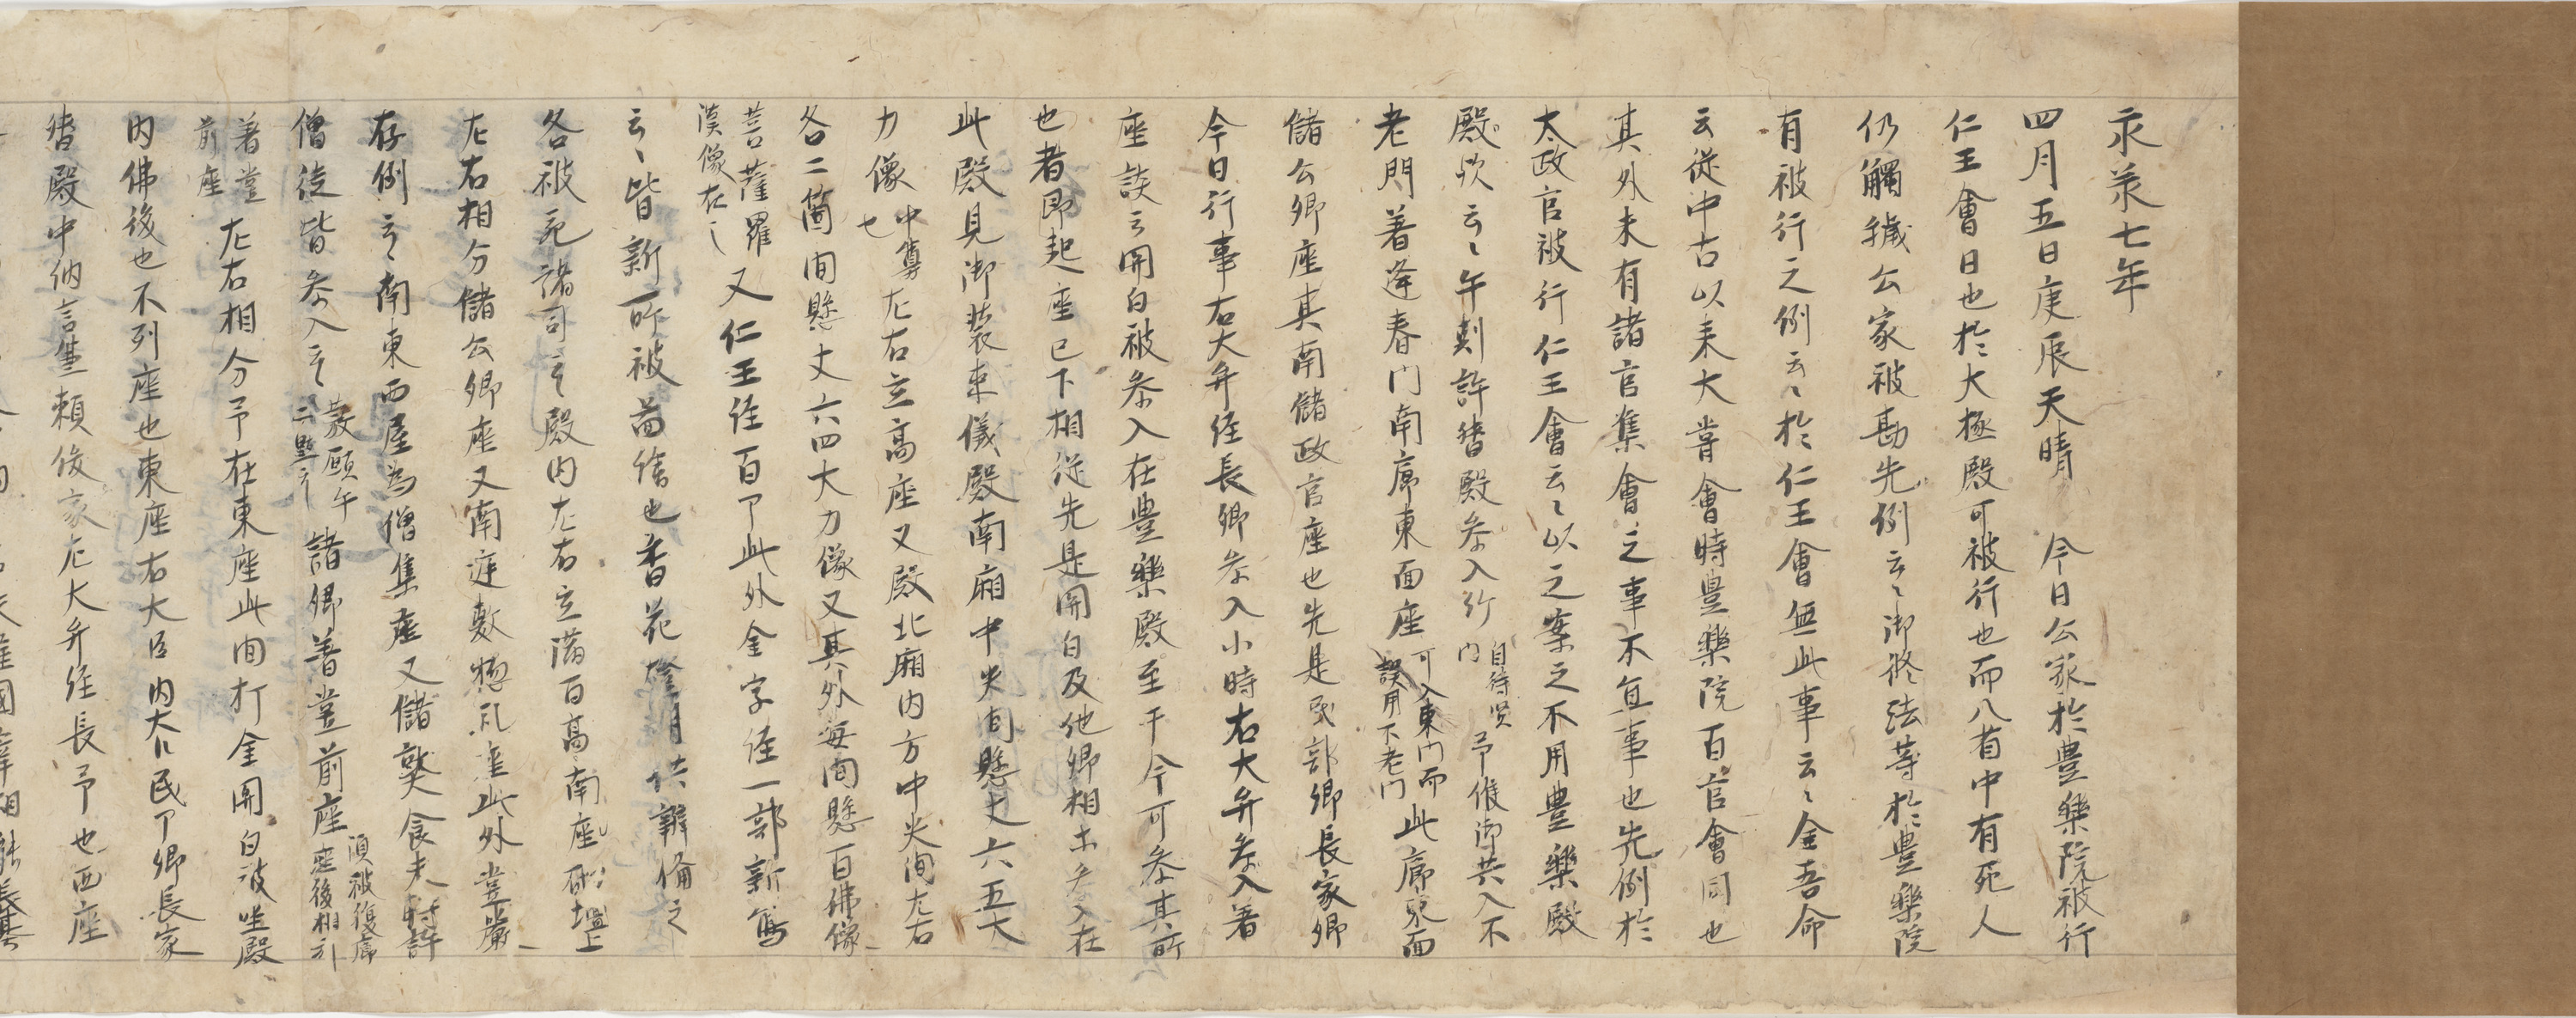 永承七年
四月五日庚辰天晴　今日公家於豊樂院被行
仁王會日也於大極殿可被行也而八省中有死人
仍觸穢公家被勘先例云〻御修法等於豊樂院
有被行之例云〻於仁王會無此事云〻金吾命
云従中古以来大甞會時豊樂院百官會同也
其外未有諸官集會之事不宜事也先例於
太政官被行仁王會云〻以之案之不用豊樂殿
殿歟云〻午剋許替殿参入行内自待賢門予候御共入不
老門着逢春門南廊東面座可入東門而誤用下老門此廊東面
儲公卿座其南儲政官座也先是民部卿長家卿
今日行事右大弁経長卿参入小時右大弁参入着
座談云開白被参入在豊樂殿至于今可参其所
也者即起座已下相従先是開白及他卿相䒭参入在
此殿見御装束儀殿南廂中央間懸丈六五大
力像中尊也左右立高座又殿北廂内方中央間左右
各二箇間懸丈六四大力像又其外毎間懸百佛像
菩薩羅漢像在之又仁王経百部此外金字経一部新寫
云〻皆新所被啚繪也香花燈明供辨備之
各被宛諸司云〻殿内左右立満百高南座砌壇上
左右相分儲公卿座又南庭敷 礼座此外堂嚴
存例云〻南東西屋為僧集座又儲 食未時許
僧徒皆参入云〻 諸卿着堂前座 座後相引
着堂前座左右相分予在東座此間打金開白被坐殿
内佛後也不列座也東座右大臣内大臣民部卿長家
替殿中納言 頼俊家左大弁経長予也西座